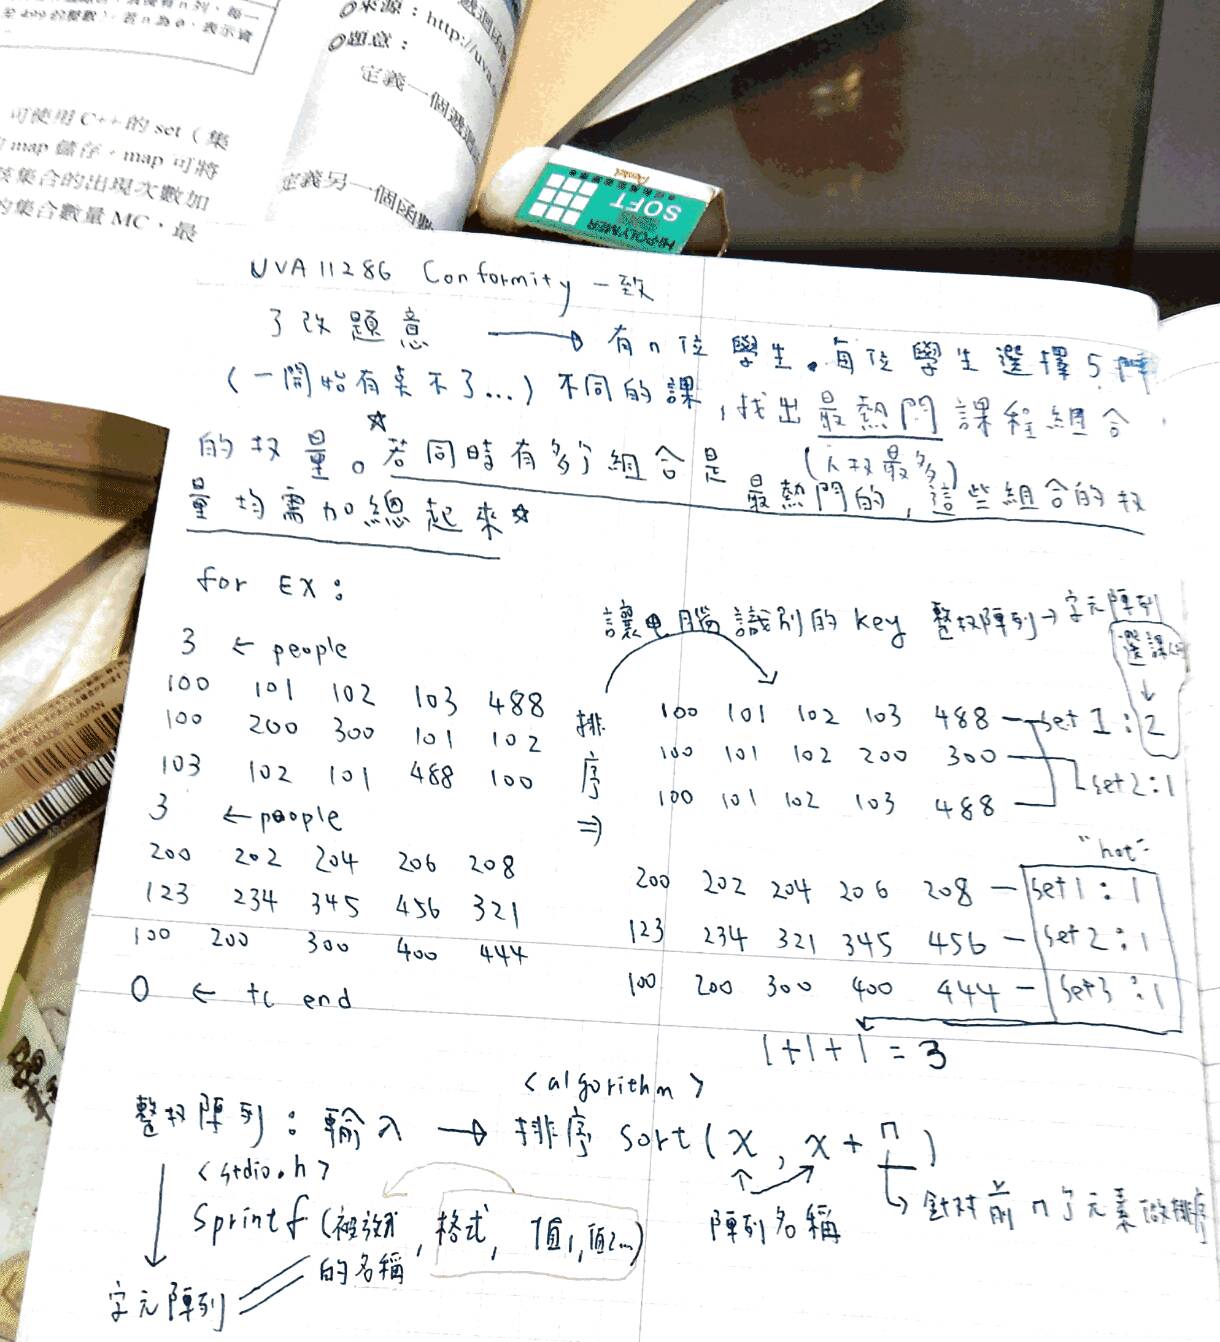 可使用 C++ 的 set（集
map 儲存，map 可將
集合的出現次數加
的集合數量 MC，最
來源：http://uva.
題意：
定義一個遞迴
定義另一個函數
SOFT
HI-POLYMER
Pentel
UVA 11286 Conformity 一致
了改題意 → 有n位學生。每位學生選擇5門
(一開始有桌不了...) 不同的課,找出最熱門課程組合
(人数最多)
的数量。☆若同時有多个組合是最熱門的,這些組合的数
量均需加總起來☆
for EX:
讓电腦識別的key 整数陣列→字元陣列
3 ← people
100 101 102 103 488
100 200 300 101 102
103 102 101 488 100
3 ← people
200 202 204 206 208
123 234 345 456 321
100 200 300 400 444
0 ← tc end
排序⇒
選課
↓
100 101 102 103 488 — set 1 : 2
100 101 102 200 300 — set2:1
100 101 102 103 488
"hot"
200 202 204 206 208 — set1:1
123 234 321 345 456 — set2:1
100 200 300 400 444 — set3:1
1+1+1=3
<algorithm>
整数陣列:輸入 → 排序 sort(x, x+n)
陣列名稱
針對前n个元素做排序
<stdio.h>
sprintf (被放的名稱, 格式, 值1,值2...)
字元陣列
MADE IN JAPAN